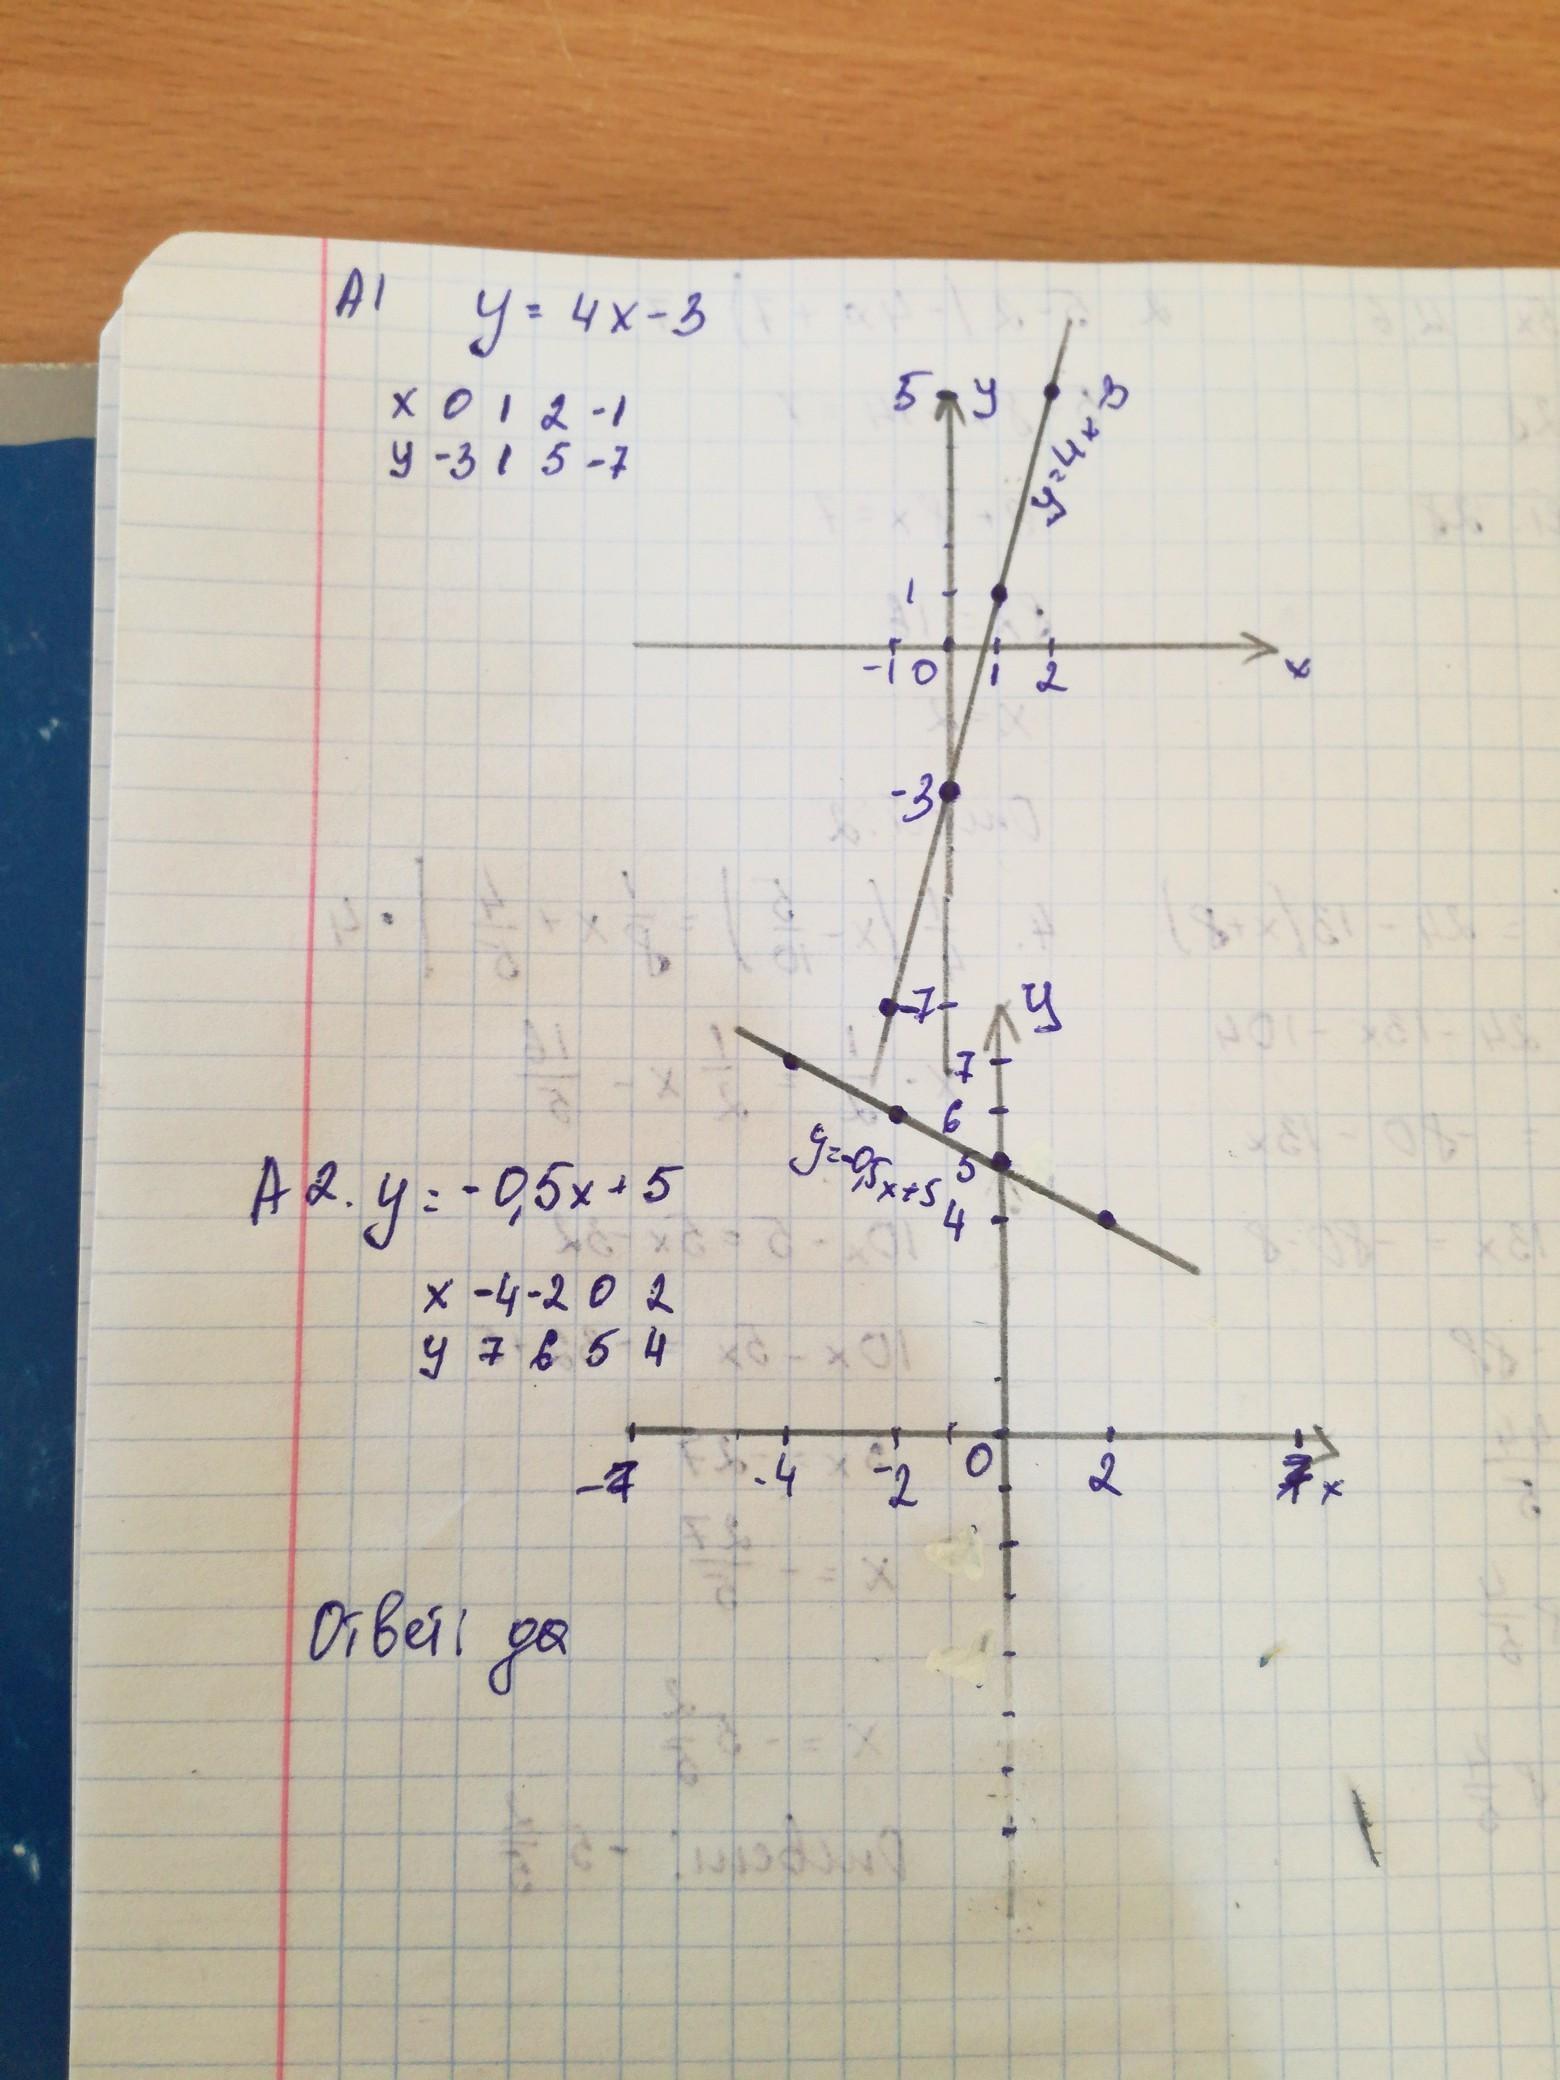 А1 y = 4x - 3
x 0 1 2 -1
y -3 1 5 -7
5 y
y=4x-3
1
-1 0 1 2 x
-3
-7
y
7
6
5
4
y=-0,5x+5
А2. y = -0,5x + 5
x -4 -2 0 2
y 7 6 5 4
-7 -4 -2 0 2 7 x
Ответ: да